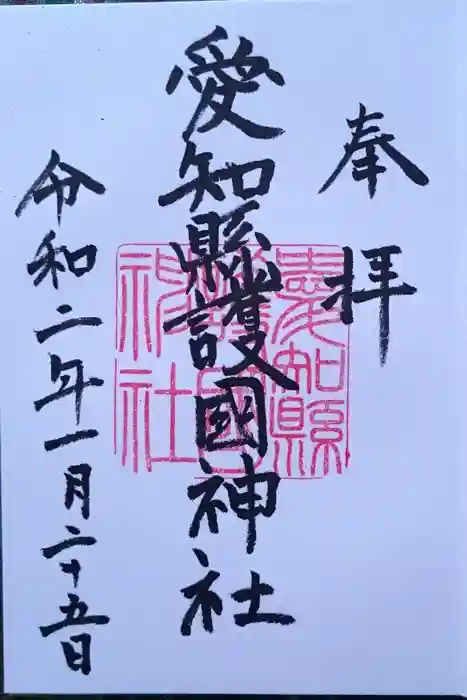 奉拝
愛知縣護國神社
愛知縣護國神社
令和二年一月二十五日